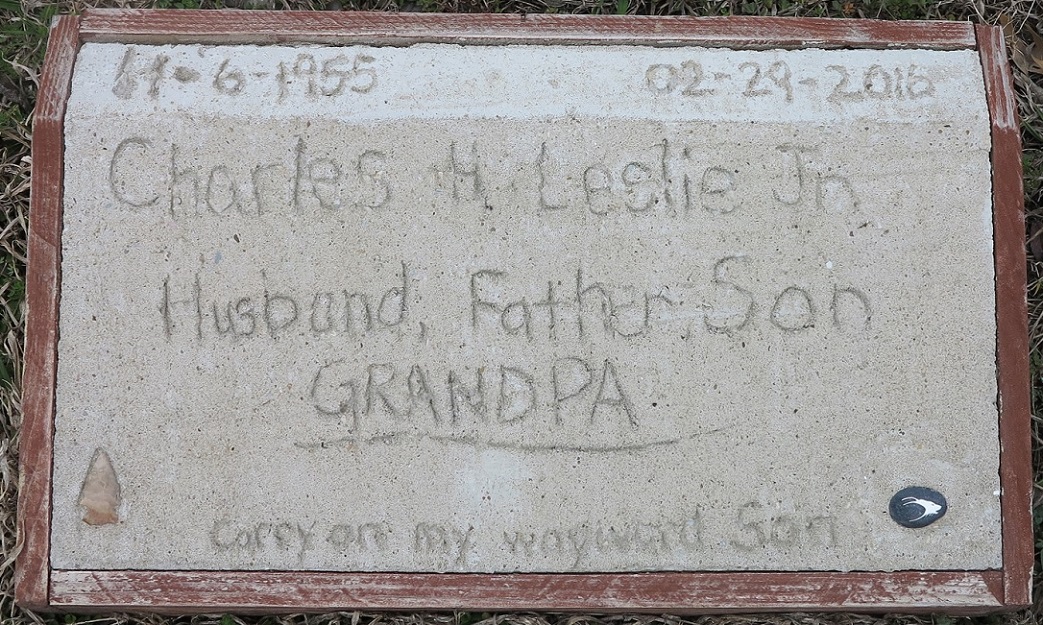 11-6-1955 02-29-2016
Charles H Leslie Jr
Husband, Father, Son
GRANDPA
Carry on my wayward Son